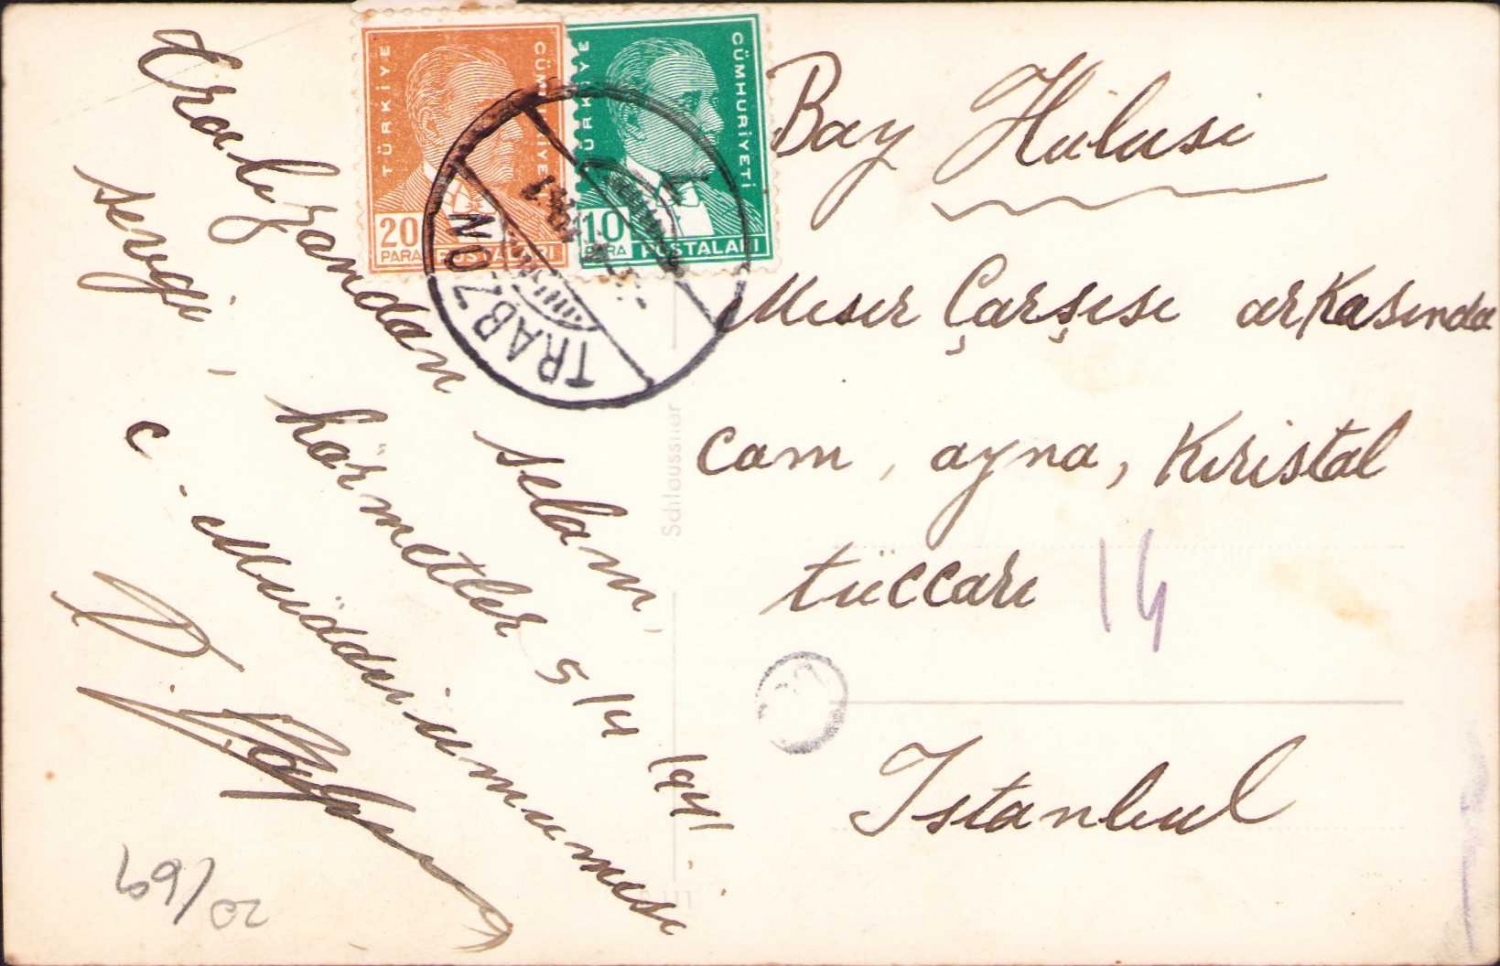 Trabzondan selam,
sevgi, hörmetler 5/4 1941
C. Müddeiumumisi
TÜRKİYE CÜMHURİYETİ
20
PARA POSTALARI
TÜRKİYE CÜMHURİYETİ
10
PARA POSTALARI
TRABZON
Bay Hulusi
Mısır Çarşısı arkasında
cam, ayna, Kıristal
tüccarı
14
İstanbul
Schleussner